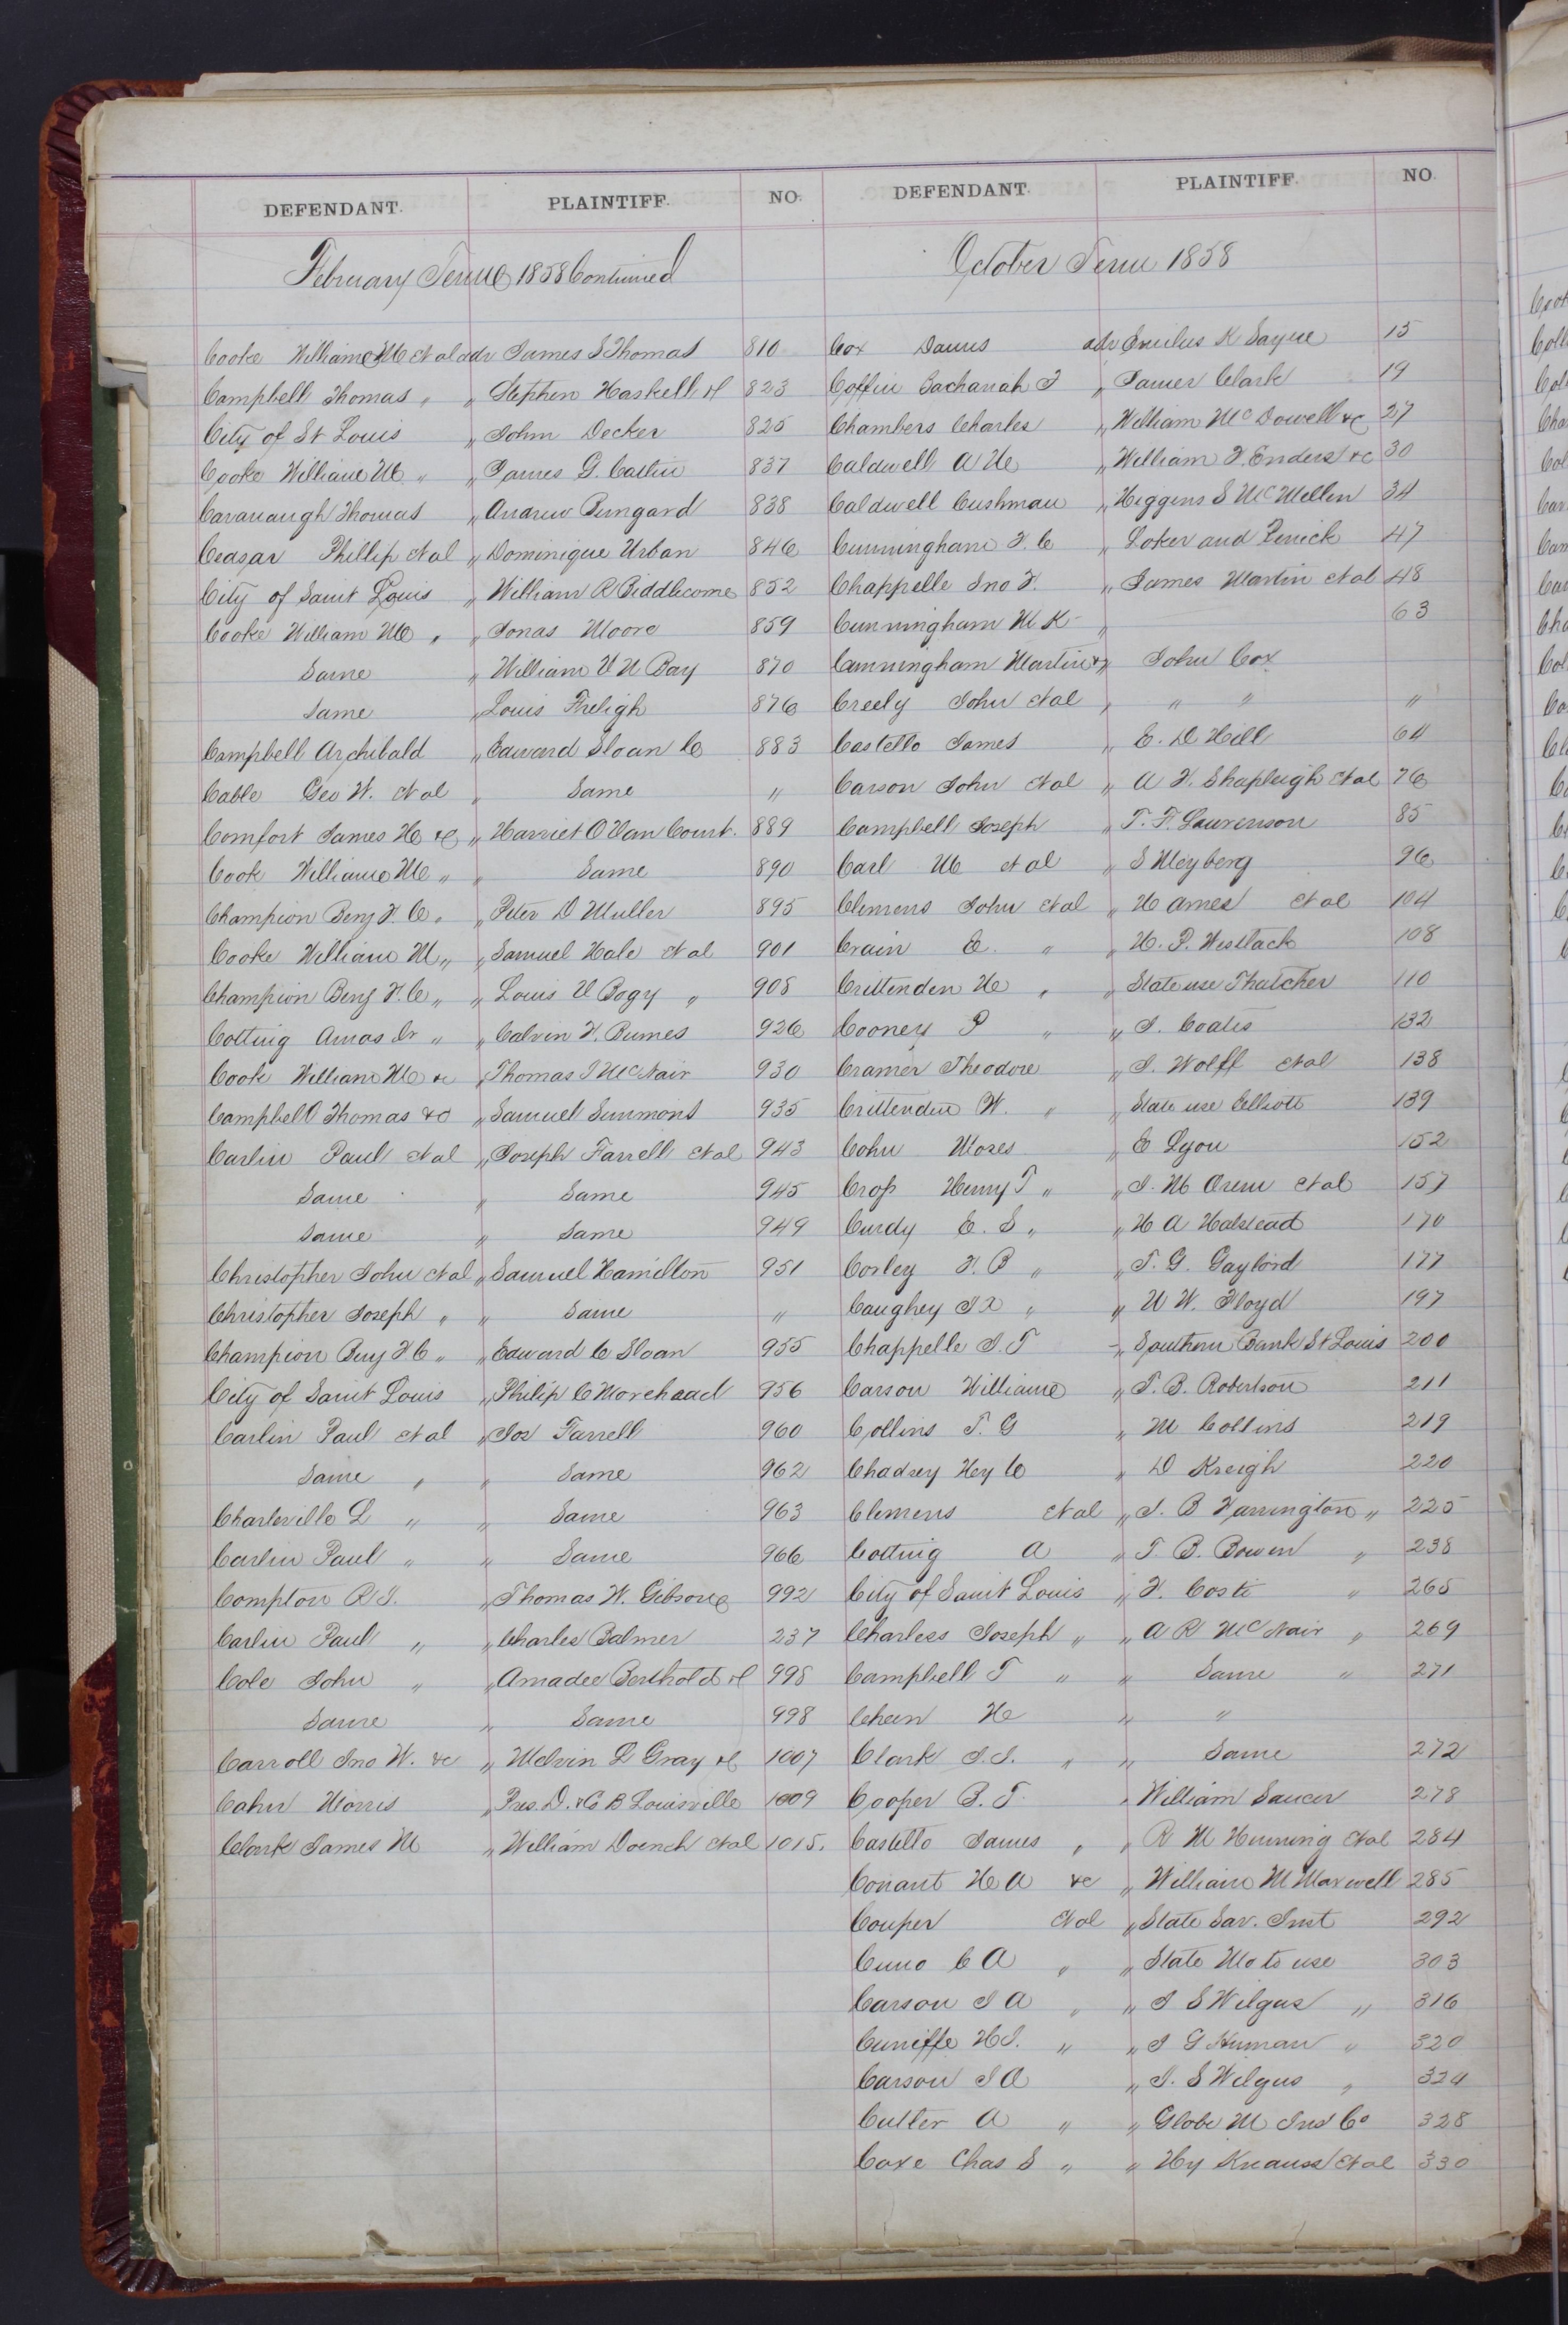 DEFENDANT. PLAINTIFF. NO.
February Term 1858 Continued
Cooke William M et al adv James S Thomas 810
Campbell Thomas " " Stephen Haskell &c 823
City of St Louis " John Decker 825
Cooke William M " " James G. Catlin 837
Cavanaugh Thomas " Andrew Pungard 838
Ceasar Phillip et al " Dominique Urban 846
City of Saint Louis " William R Biddlecome 852
Cooke William M " " Jonas Moore 859
Same " William V N Bay 870
Same " Louis Freligh 876
Campbell Archibald " Edward Sloan Co 883
Cable Geo W. et al " Same "
Comfort James H &c " Harriet O Van Court. 889
Cook William M " " Same 890
Champion Benj F. C. " Peter D Muller 895
Cooke William M " " Samuel Hale et al 901
Champion Benj F. C " " Louis V Bogy " 908
Cotting Amos Dr " " Calvin F. Burnes 926
Cook William M &c " Thomas J McNair 930
Campbell Thomas &c " Samuel Simmons 935
Carlin Paul et al " Joseph Farrell et al 943
Same " Same 945
Same " Same 949
Christopher John et al " Samuel Hamilton 951
Christopher Joseph " " Same "
Champion Benj F C " " Edward C Sloan 955
City of Saint Louis " Philip C Morehead 956
Carlin Paul et al " Jos Farrell 960
Same " " Same 962
Charleville L " " Same 963
Carlin Paul " " Same 966
Compton R J. " Thomas W. Gibson 992
Carlin Paul " " Charles Balmer 237
Cole John " " Amadee Berthold &c 998
Same " Same 998
Carroll Jno W. &c " Melvin L Gray &c 1007
Cahn Morris " Pres. D. & C B Louisville 1009
Clark James M " William Doench et al 1015.
DEFENDANT. PLAINTIFF. NO.
October Term 1858
Cox Daniis adv K Sayre 15
Coffin Zachariah J " James Clark 19
Chambers Charles " William McDowell &c 27
Caldwell A H " William F. Enders &c 30
Caldwell Cushman " Higgins S McMillen 34
Cunningham F. C " Loker and Renick 47
Chappelle Jno F. " James Martin et al 48
Cunningham M K " 63
Cunningham Martin & " John Cox
Creely John et al " " " "
Castello James " E. D Hill 64
Carson John et al " A F. Shapleigh et al 76
Campbell Joseph " T. F. Laurenson 85
Carl M et al " S Meyberg 96
Clemens John et al " H Ames et al 104
Crain E. " " H. P. Westlack 108
Crittenden H " " State use Thatcher 110
Cooney P " " J. Coates 132
Cramer Theodore " J. Wolff et al 138
Crittenden W. " " State use Elliott 139
Cohn Moses " E Lyon 152
Crop Henry T " " J. M Orem et al 157
Curdy E. S " " H A Halstead 170
Corley F. B " " T. G. Gaylord 177
Caughey J X " " W W. Floyd 197
Chappelle J. T " Southern Bank St Louis 200
Carson William " T. B. Robertson 211
Collins T. G " M Collins 219
Chadsey Hey C " D Kreigh 220
Clemens et al " J. B Farrington " 225
Cotting A " T. B. Bowen " 238
City of Saint Louis " F. Coste " 265
Charless Joseph " " A R McNair " 269
Campbell T " " Same " 271
H " "
Clark J. J. " " Same 272
Cooper B. T. " William Saucer 278
Castello James " " R M Henning et al 284
Conant H A &c " William M Maxwell 285
Couper et al " State Sav. Inst 292
Cuno C A " " State Mo to use 303
Carson J A " " J S Wilgus " 316
Cuniffe H J. " " J G Human " 320
Carson J A " J. S Wilgus " 324
Cutler A " " Globe M Ins Co 328
Coxe Chas S " " Hy Knauss et al 330